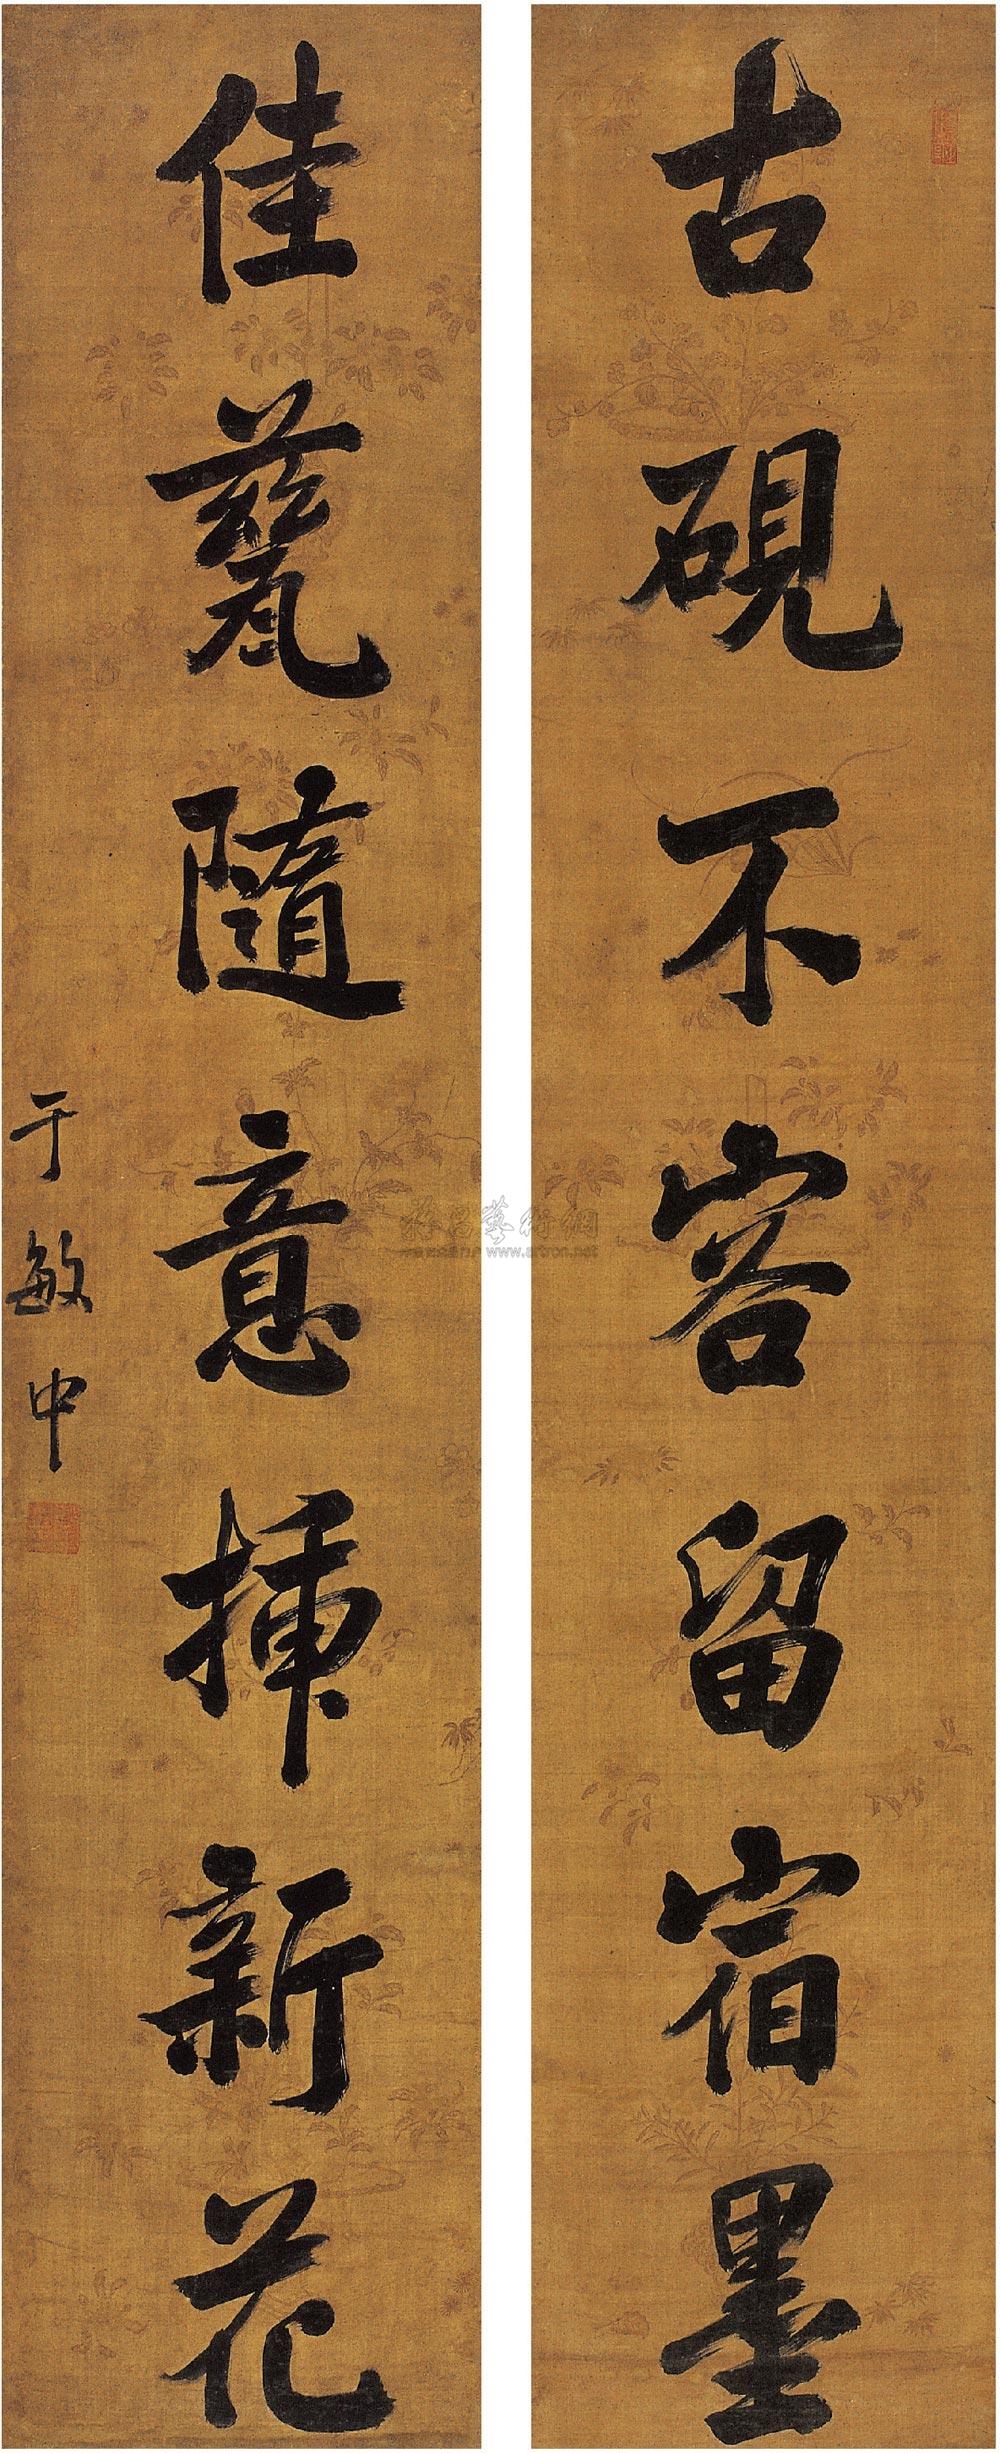 古硯不容留宿墨
佳甆隨意插新花
于敏中
www.artron.net